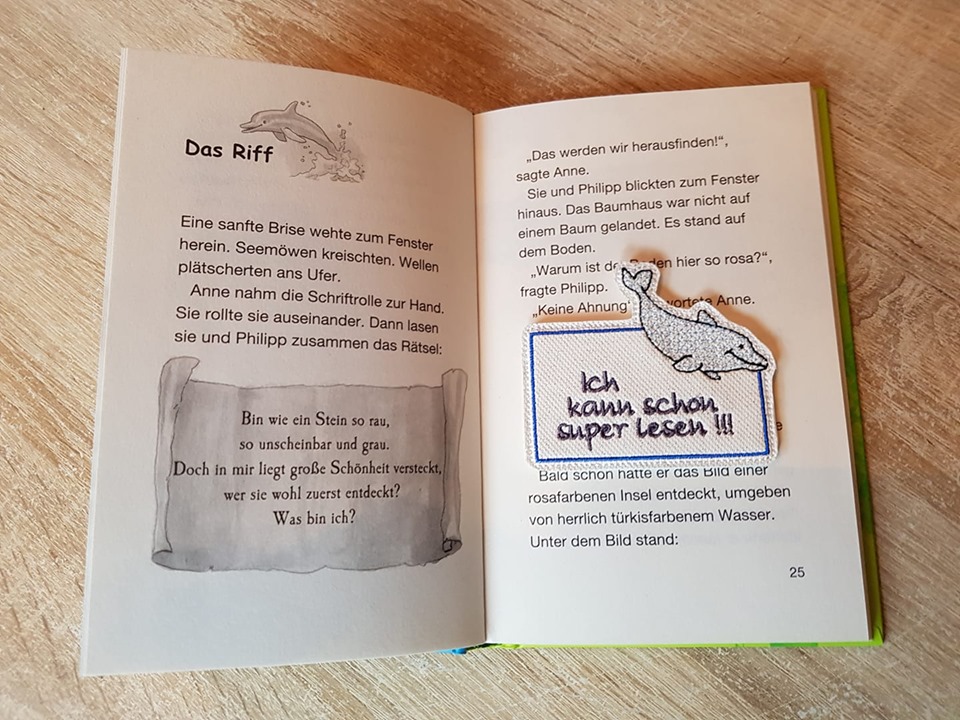 Das Riff
Eine sanfte Brise wehte zum Fenster
herein. Seemöwen kreischten. Wellen
plätscherten ans Ufer.
Anne nahm die Schriftrolle zur Hand.
Sie rollte sie auseinander. Dann lasen
sie und Philipp zusammen das Rätsel:
Bin wie ein Stein so rau,
so unscheinbar und grau.
Doch in mir liegt große Schönheit versteckt,
wer sie wohl zuerst entdeckt?
Was bin ich?
„Das werden wir herausfinden!“,
sagte Anne.
Sie und Philipp blickten zum Fenster
hinaus. Das Baumhaus war nicht auf
einem Baum gelandet. Es stand auf
dem Boden.
„Warum ist hier so rosa?“,
fragte Philipp.
„Keine Ahnung“ Anne.
Ich
kann schon
super lesen !!!
Bald schon hatte er das Bild einer
rosafarbenen Insel entdeckt, umgeben
von herrlich türkisfarbenem Wasser.
Unter dem Bild stand:
25